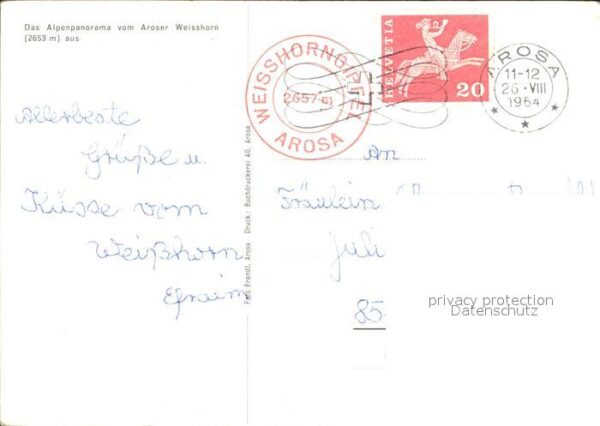 Das Alpenpanorama vom Aroser Weisshorn
(2653 m) aus
Allerbeste
Grüße u.
Küsse vom
Weißhorn
Efraim
Foto Brandt, Arosa Druck: Buchdruckerei AG, Arosa
WEISSHORNGIPFEL
2657 m
AROSA
HELVETIA
20
AROSA
11-12
26·VIII
1964
An
Fräulein
Juli
85
privacy protection
Datenschutz